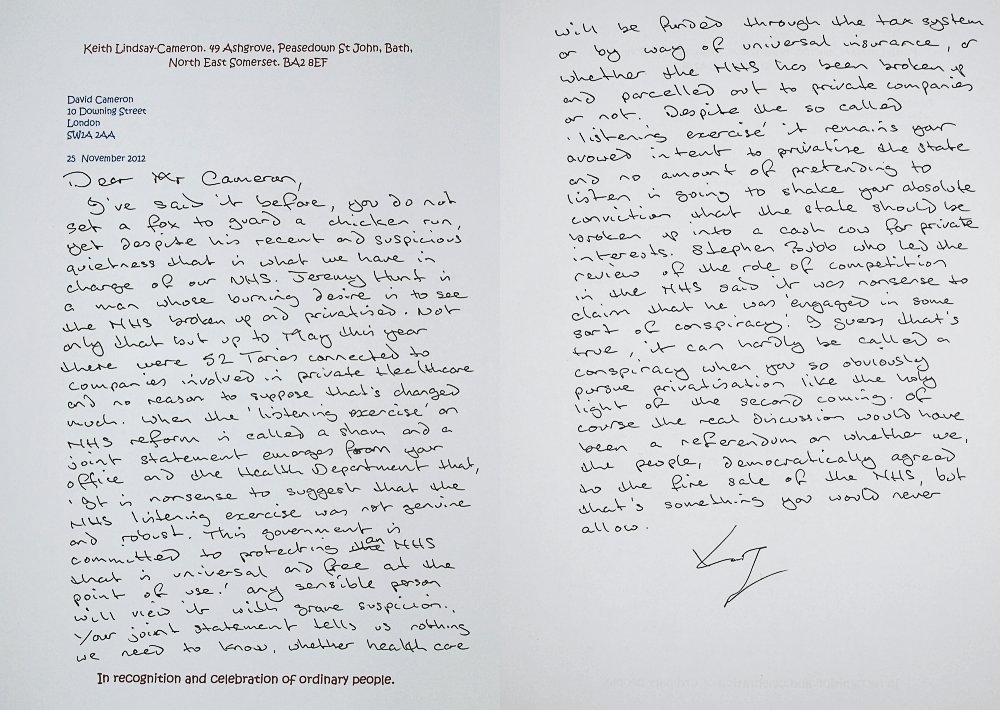 Keith Lindsay-Cameron. 49 Ashgrove, Peasedown St John, Bath,
North East Somerset. BA2 8EF
David Cameron
10 Downing Street
London
SW1A 2AA
25 November 2012
Dear Mr Cameron,
I've said it before, you do not
set a fox to guard a chicken run,
yet despite his recent and suspicious
quietness that is what we have in
charge of our NHS. Jeremy Hunt is
a man whose burning desire is to see
the NHS broken up and privatised. Not
only that but up to May this year
there were 52 Tories connected to
companies involved in private Healthcare
and no reason to suppose that's changed
much. When the 'listening exercise' on
NHS reform is called a sham and a
joint statement emerges from your
office and the Health Department that,
'It is nonsense to suggest that the
NHS listening exercise was not genuine
and robust. This government is
committed to protecting an NHS
that is universal and free at the
point of use.' any sensible person
will view it with grave suspicion.
Your joint statement tells us nothing
we need to know, whether health care
In recognition and celebration of ordinary people.
will be funded through the tax system
or by way of universal insurance, or
whether the NHS has been broken up
and parcelled out to private companies
or not. Despite the so called
'listening exercise' it remains your
avowed intent to privatise the state
and no amount of pretending to
listen is going to shake your absolute
conviction that the state should be
broken up into a cash cow for private
interests. Stephen Bubb who led the
review of the role of competition
in the NHS said it was nonsense to
claim that he was 'engaged in some
sort of conspiracy'. I guess that's
true, it can hardly be called a
conspiracy when you so obviously
pursue privatisation like the holy
light of the second coming. Of
course the real discussion would have
been a referendum on whether we,
the people, democratically agreed
to the fire sale of the NHS, but
that's something you would never
allow.